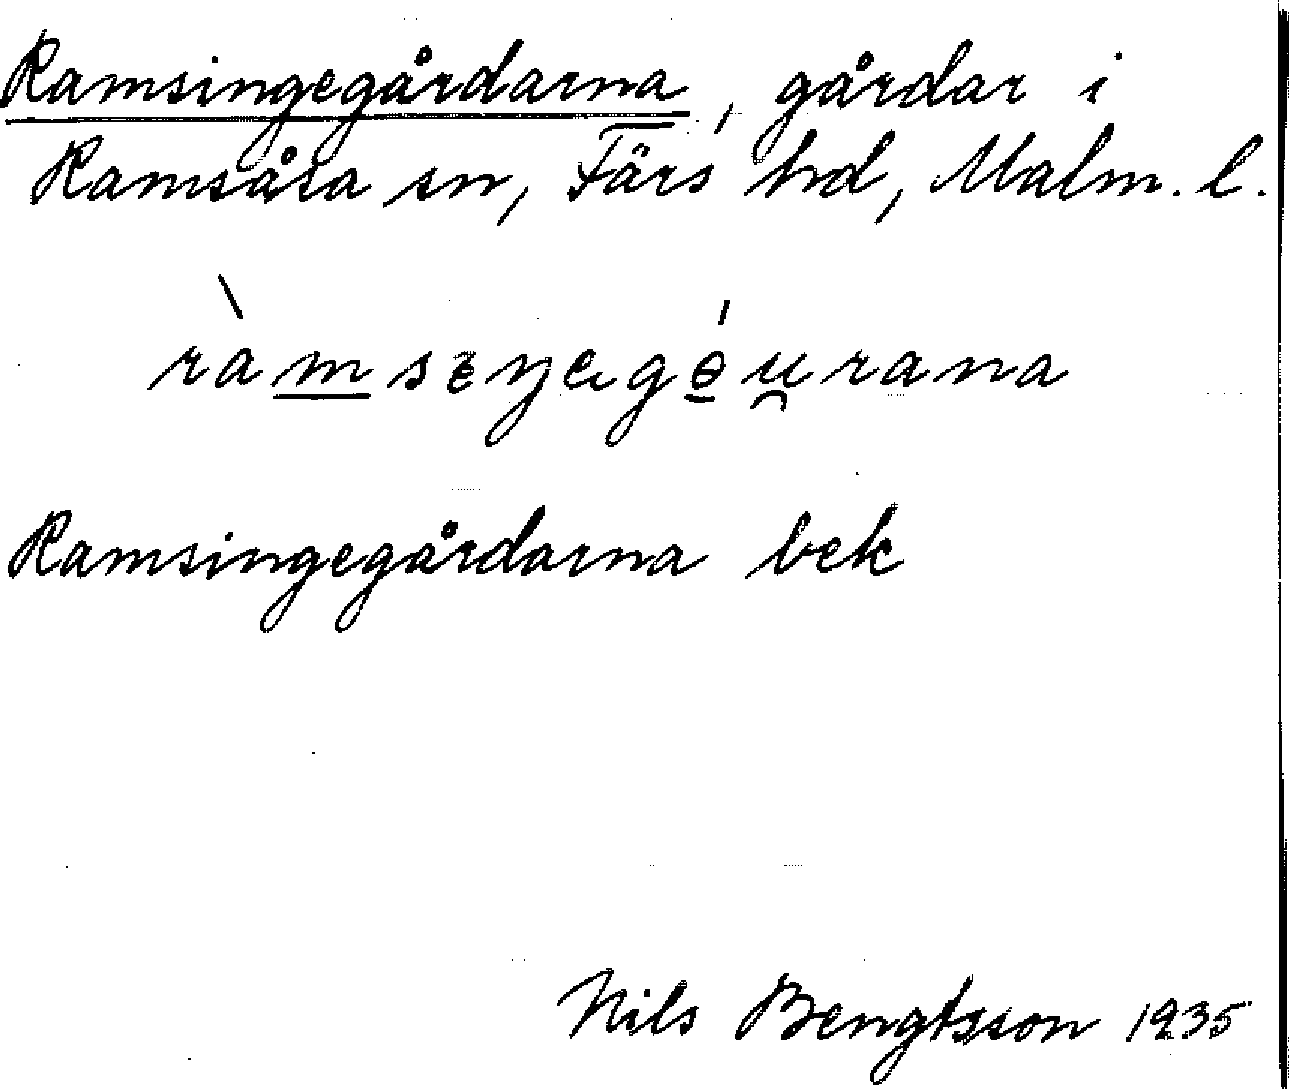 Ramsingegårdarna, gårdar i
Ramsåsa sn, Färs hd, Malm. l.
ràmsɛŋegɵ́u̯rana
Ramsingegårdarna bek
Nils Bengtsson 1935